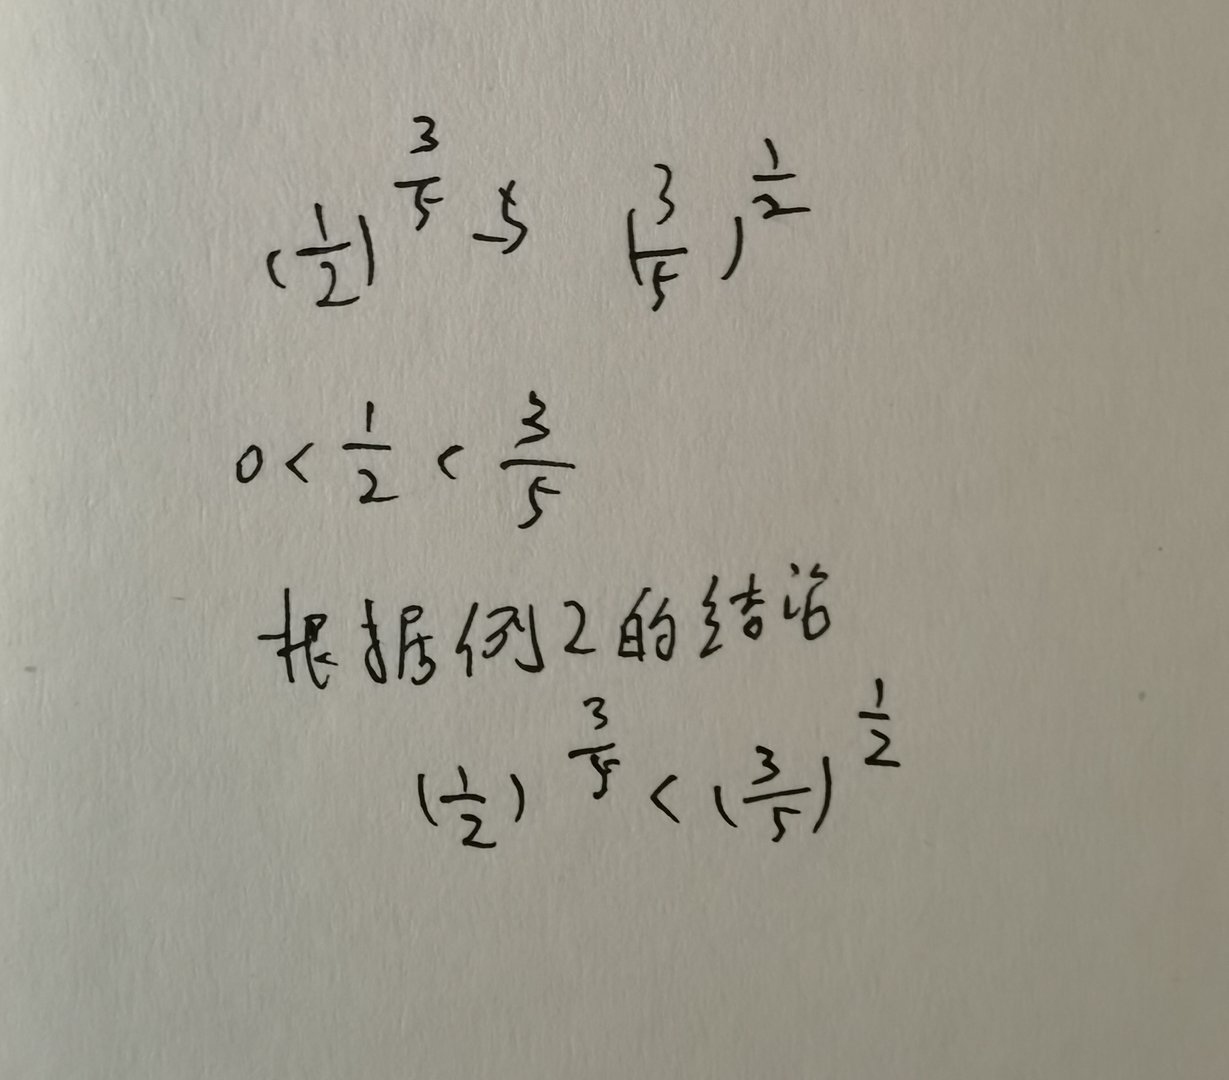 (1/2)^(3/5) 与 (3/5)^(1/2)
0 < 1/2 < 3/5
根据例2的结论
(1/2)^(3/5) < (3/5)^(1/2)